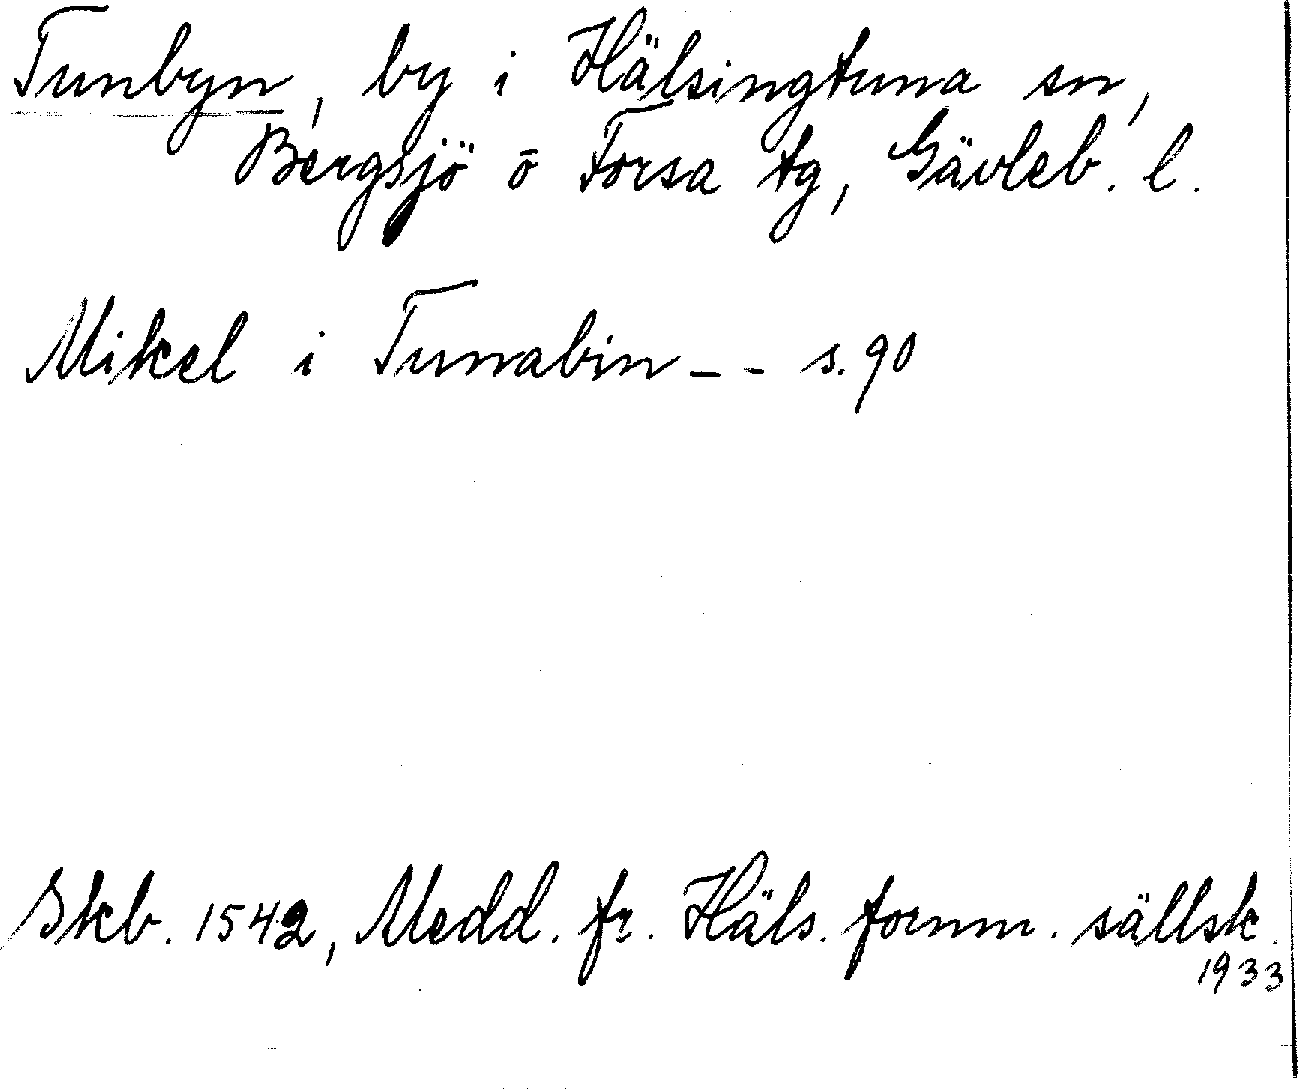 Tunbyn, by i Hälsingtuna sn,
Bergsjö o Forsa tg, Gävleb. l.
Mikel i Tunabin - - s. 90
Skb. 1542, Medd. fr. Häls. fornm. sällsk.
1933